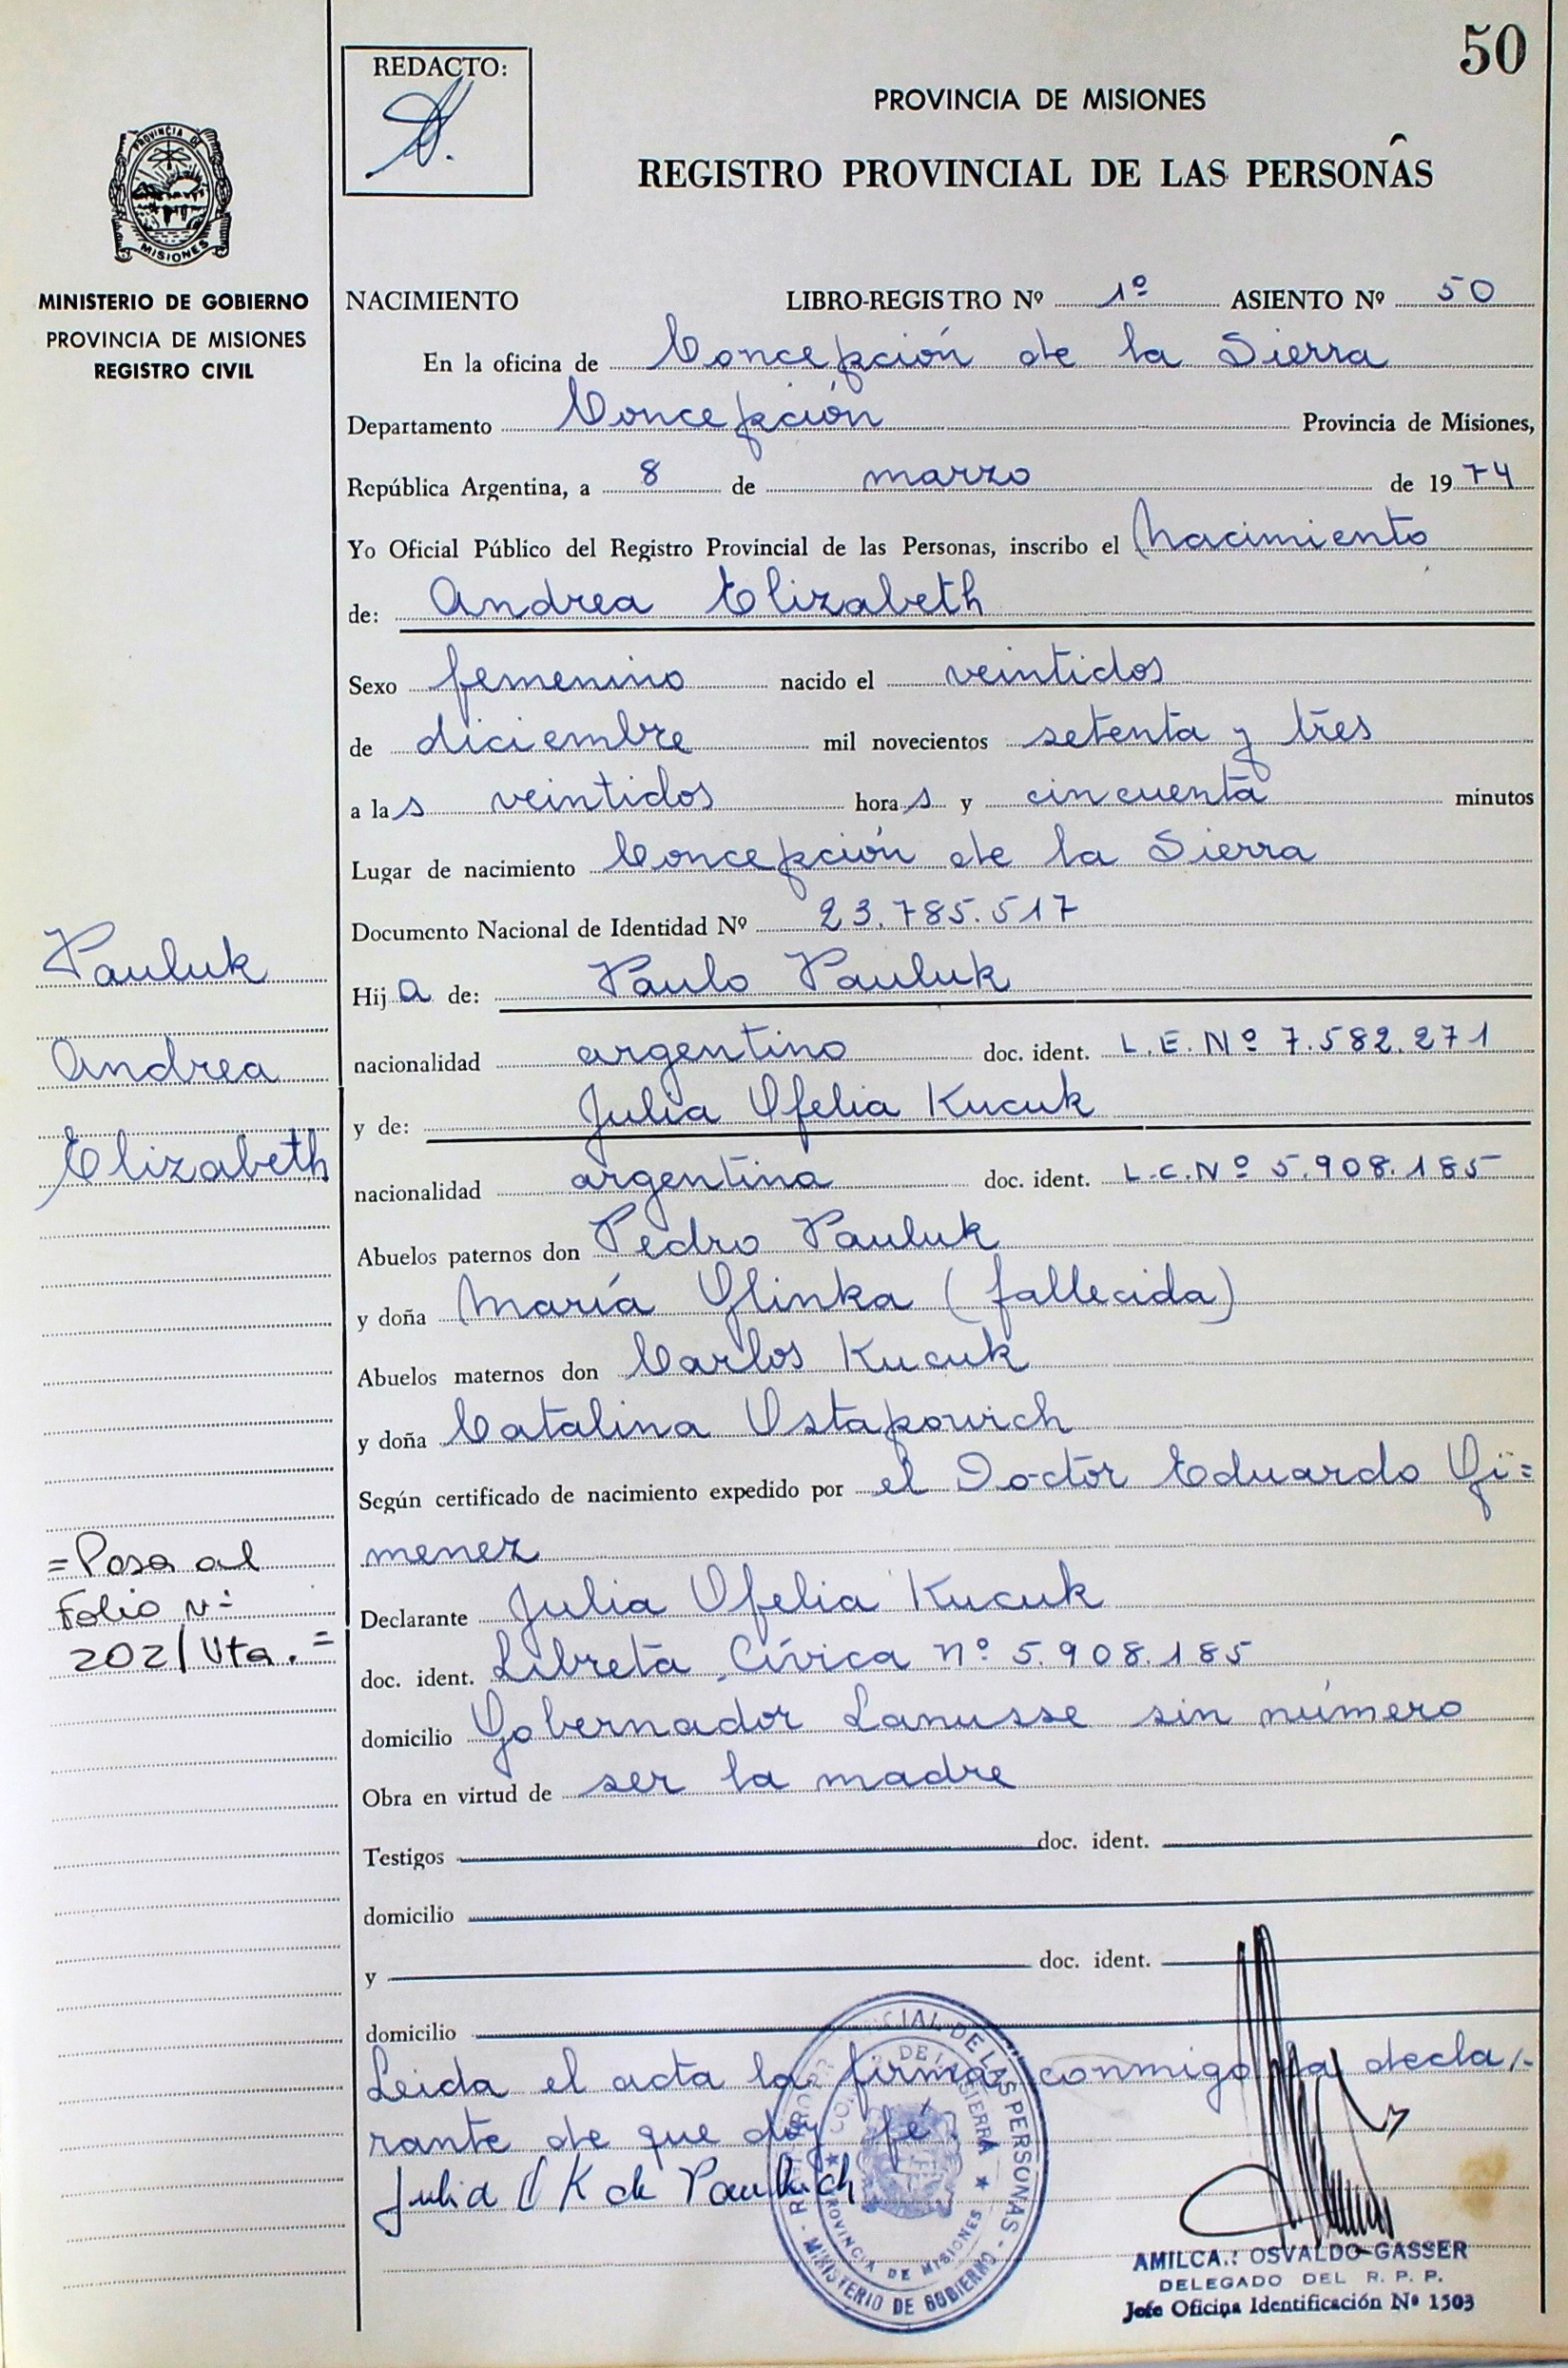 50
REDACTO:
PROVINCIA DE MISIONES
REGISTRO PROVINCIAL DE LAS PERSONAS
PROVINCIA DE
MISIONES
MINISTERIO DE GOBIERNO
PROVINCIA DE MISIONES
REGISTRO CIVIL
NACIMIENTO LIBRO-REGISTRO Nº 1º ASIENTO Nº 50
En la oficina de Concepción de la Sierra
Departamento Concepción Provincia de Misiones,
República Argentina, a 8 de marzo de 1974
Yo Oficial Público del Registro Provincial de las Personas, inscribo el Nacimiento
de: Andrea Elizabeth
Sexo femenino nacido el veintidos
de diciembre mil novecientos setenta y tres
a las veintidos horas y cincuenta minutos
Lugar de nacimiento Concepción de la Sierra
Documento Nacional de Identidad Nº 23.785.517
Hija de: Paulo Pauluk
nacionalidad argentino doc. ident. L.E.Nº 7.582.271
y de: Julia Ofelia Kucuk
nacionalidad argentina doc. ident. L.C.Nº 5.908.185
Abuelos paternos don Pedro Pauluk
y doña María Glinka (fallecida)
Abuelos maternos don Carlos Kucuk
y doña Catalina Ostapowich
Según certificado de nacimiento expedido por el Doctor Eduardo Gi=
menez
Declarante Julia Ofelia Kucuk
doc. ident. Libreta Cívica nº 5.908.185
domicilio Gobernador Lanusse sin número
Obra en virtud de ser la madre
Testigos doc. ident.
domicilio
y doc. ident.
domicilio
Leida el acta la firma conmigo la decla/-
rante de que doy fé.
Julia O K de
Pauluk
Andrea
Elizabeth
=Pasa al
Folio nº
202/Vta.=
DE LAS PERSONAS - MINISTERIO DE GOBIERNO -
DE LA SIERRA ★ PROVINCIA DE MISIONES ★
OSVALDO GASSER
DELEGADO DEL R. P. P.
Jefe Oficina Identificación Nº 1503